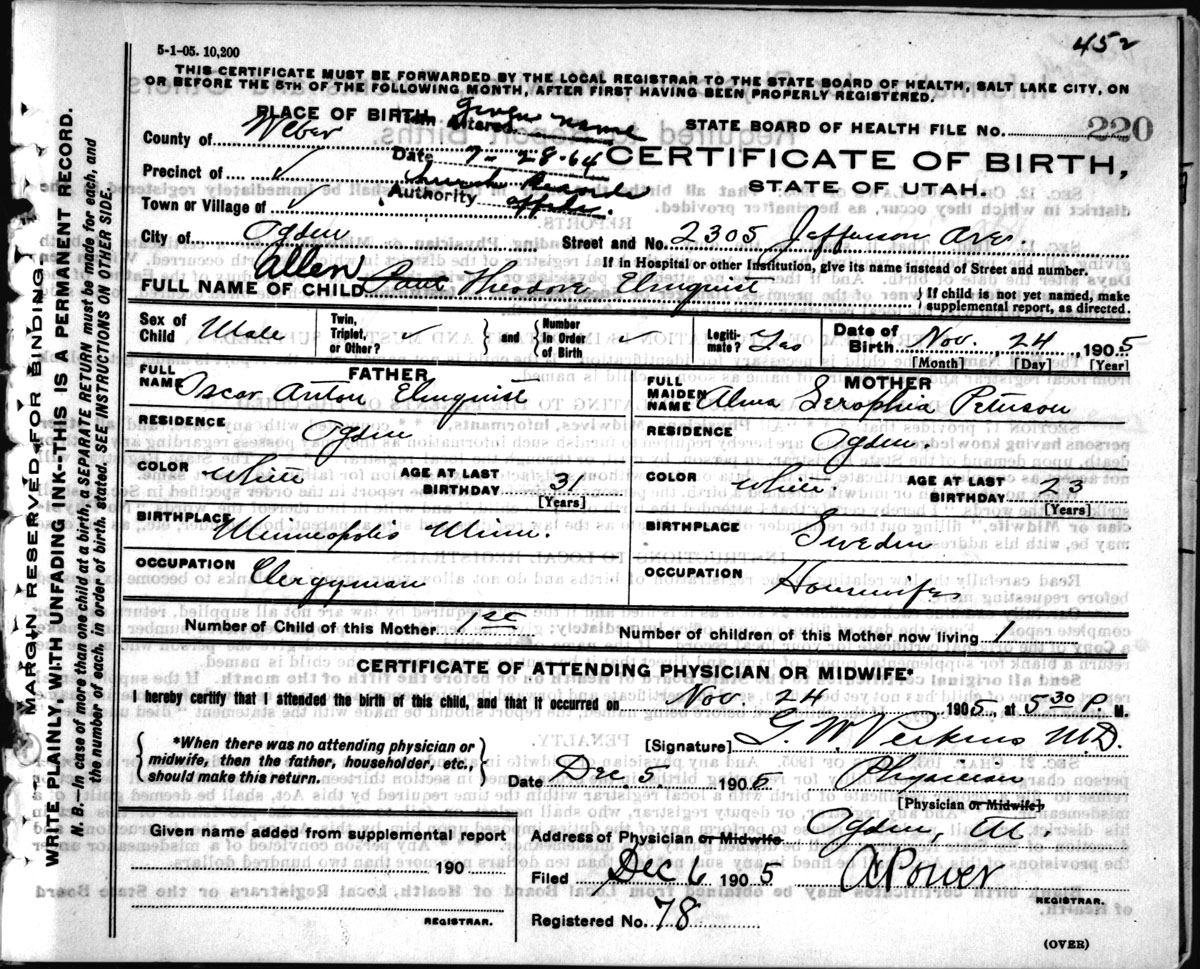 452
5-1-05. 10,200
THIS CERTIFICATE MUST BE FORWARDED BY THE LOCAL REGISTRAR TO THE STATE BOARD OF HEALTH, SALT LAKE CITY, ON
OR BEFORE THE 5TH OF THE FOLLOWING MONTH, AFTER FIRST HAVING BEEN PROPERLY REGISTERED.
PLACE OF BIRTH
Given name
Item altered
STATE BOARD OF HEALTH FILE NO. 220
County of Weber
Date 7-28-64
CERTIFICATE OF BIRTH,
Precinct of ✓
Church Records
STATE OF UTAH.
Town or Village of ✓
Authority
City of Ogden
Street and No. 2305 Jefferson Ave
Allen
If in Hospital or other Institution, give its name instead of Street and number.
FULL NAME OF CHILD Paul Theodore Elmquist
If child is not yet named, make
supplemental report, as directed.
Sex of Child Male
Twin, Triplet, or Other? ✓ and Number in Order of Birth ✓
Legitimate? Yes
Date of Birth Nov. 24, 1905
[Month] [Day] [Year]
FATHER
FULL NAME Oscar Anton Elmquist
RESIDENCE Ogden
COLOR White
AGE AT LAST BIRTHDAY 31
[Years]
BIRTHPLACE Minneapolis Minn.
OCCUPATION Clergyman
MOTHER
FULL MAIDEN NAME Alma Peterson
RESIDENCE Ogden
COLOR White
AGE AT LAST BIRTHDAY 23
[Years]
BIRTHPLACE Sweden
OCCUPATION Housewife
Number of Child of this Mother 1st
Number of children of this Mother now living 1
CERTIFICATE OF ATTENDING PHYSICIAN OR MIDWIFE*
I hereby certify that I attended the birth of this child, and that it occurred on Nov. 24 1905, at 5 30 P. M.
*When there was no attending physician or
midwife, then the father, householder, etc.,
should make this return.
[Signature] G. W Perkins M.D.
Date Dec. 5 1905
Physician
[Physician or Midwife]
Given name added from supplemental report
190
REGISTRAR.
Address of Physician or Midwife Ogden, Ut.
Filed Dec 6 1905
A Power
REGISTRAR.
Registered No. 78
(OVER)
MARGIN RESERVED FOR BINDING
WRITE PLAINLY, WITH UNFADING INK—THIS IS A PERMANENT RECORD.
N. B.—In case of more than one child at a birth, a SEPARATE RETURN must be made for each, and
the number of each, in order of birth, stated. SEE INSTRUCTIONS ON OTHER SIDE.